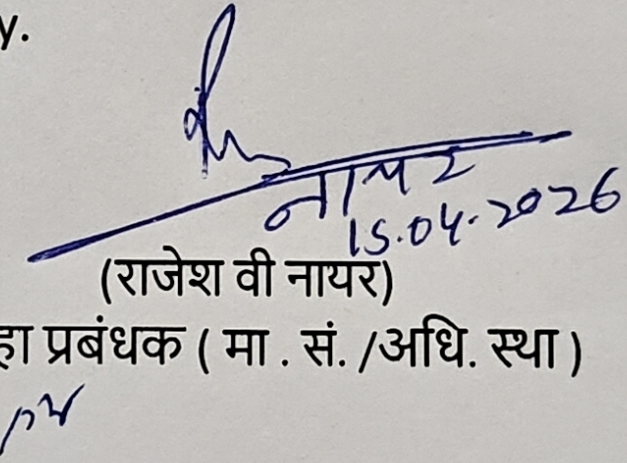 y.
नायर
15.04.2026
(राजेश वी नायर)
हा प्रबंधक ( मा . सं. /अधि. स्था )